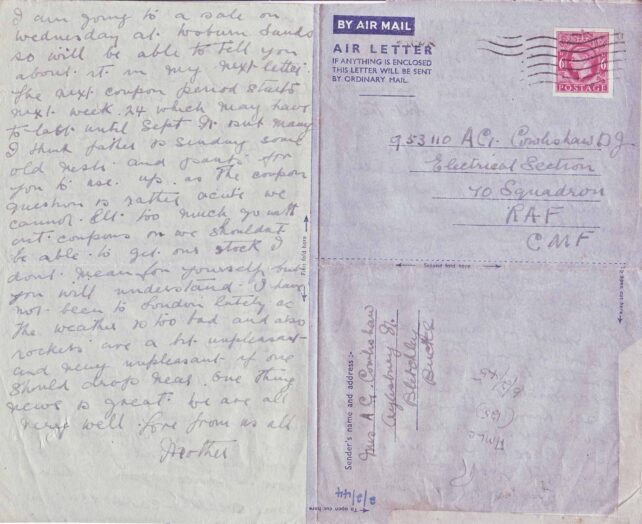 I am going to a sale on
Wednesday at Woburn Sands
so will be able to tell you
about it in my next letter.
The next coupon period starts
next week. 24 which may have
to last until Sept
I think father is sending some
old vests and pants for
you to use up as the coupon
question is rather acute we
cannot let too much go with
out coupons or we shouldnt
be able to get our stock I
dont mean for yourself but
you will understand. I have
not been to London lately as
the weather is too bad and also
rockets are a bit unpleasant
and very unpleasant if one
should drop near. One thing
news is great. We are all
very well. Love from us all
Mother
BY AIR MAIL
AIR LETTER
IF ANYTHING IS ENCLOSED
THIS LETTER WILL BE SENT
BY ORDINARY MAIL.
6D
POSTAGE
953110 AC1. Cowlishaw D J
Electrical Section
70 Squadron
RAF
CMF
First fold here
Second fold here
To open cut here
Sender's name and address :-
Mrs A G Cowlishaw
Aylesbury St.
Bletchley
Bucks
To open cut here